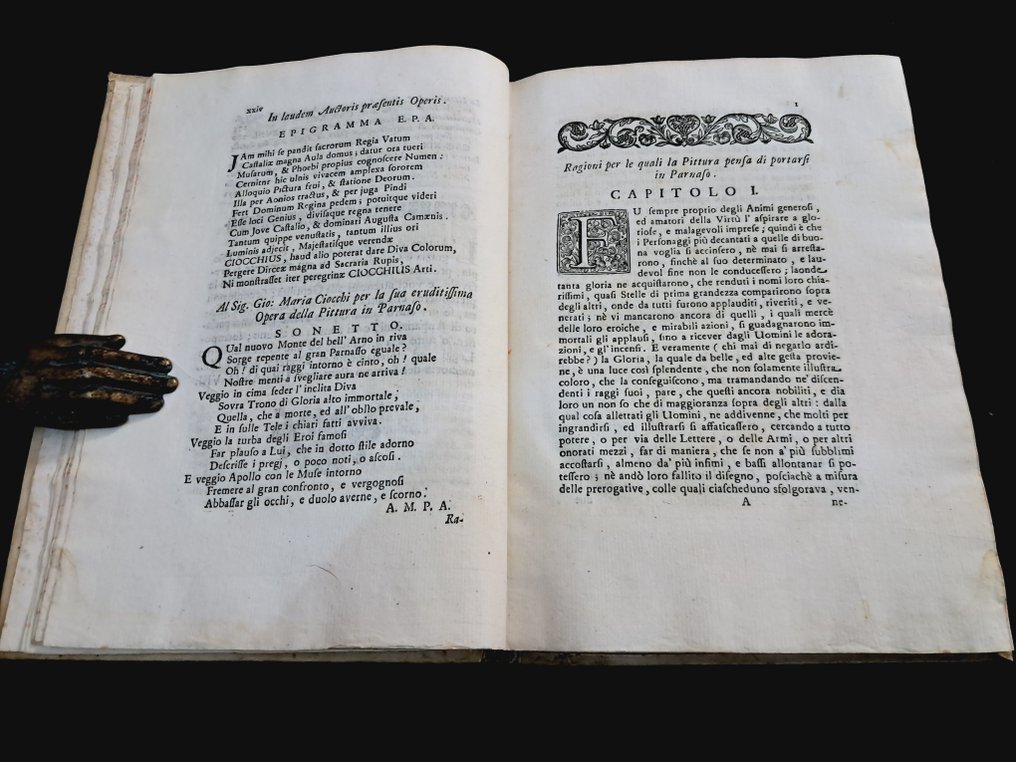 xxiv
In laudem Auctoris præsentis Operis.
EPIGRAMMA E.P.A.
JAm mihi se pandit sacrorum Regia Vatum
Castaliæ magna Aula domus; datur ora tueri
Musarum, & Phoebi propius cognoscere Numen:
Cernitur hic ulnis vivacem amplexa sororem
Alloquio Pictura frui, & statione Deorum.
Illa per Aonios tractus, & per juga Pindi
Fert Dominum Regina pedem; potuitque videri
Esse loci Genius, divisaque regna tenere
Cum Jove Castalio, & dominari Augusta Camœnis.
Tantum quippe venustatis, tantum illius ori
Luminis adjecit, Majestatisque verendæ
CIOCCHIUS, haud alio poterat dare Diva Colorum,
Pergere Dircæa magna ad Sacraria Rupis,
Ni monstrasset iter peregrinæ CIOCCHIUS Arti.
Al Sig. Gio: Maria Ciocchi per la sua eruditissima
Opera della Pittura in Parnaso.
SONETTO.
QUal nuovo Monte del bell' Arno in riva
Sorge repente al gran Parnasso eguale?
Oh! di quai raggi intorno è cinto, oh! quale
Nostre menti a svegliare aura ne arriva!
Veggio in cima seder l'inclita Diva
Sovra Trono di Gloria alto immortale;
Quella, che a morte, ed all' obllo prevale,
E in sulle Tele i chiari fatti avviva.
Veggo la turba degli Eroi famosi
Far plauso a Lui, che in dotto stile adorno
Descrisse i pregj, o poco noti, o ascosi.
E veggio Apollo con le Muse intorno
Fremere al gran confronto, e vergognosi
Abbassar gli occhi, e duolo averne, e scorno.
A. M. P. A.
Ra-
1
Ragioni per le quali la Pittura pensa di portarsi
in Parnaso.
CAPITOLO I.
FU sempre proprio degli Animi generosi,
ed amatori della Virtù l' aspirare a glo-
riose, e malagevoli imprese; quindi è che
i Personaggi più decantati a quelle di buo-
na voglia si accinsero, nè mai si arresta-
rono, finchè al suo determinato, e lau-
devol fine non le conducessero; laonde
tanta gloria ne acquistarono, che renduti i nomi loro chia-
rissimi, quasi Stelle di prima grandezza comparirono sopra
degli altri, onde da tutti furono applauditi, riveriti, e ve-
nerati; nè vi mancarono ancora di quelli, i quali mercè
delle loro eroiche, e mirabili azioni, si guadagnarono im-
mortali gli applausi, sino a ricever dagli Uomini le adora-
zioni, e gl'incensi. E veramente (chi mai di negarlo ardi-
rebbe?) la Gloria, la quale da belle, ed alte gesta provie-
ne, è una luce così splendente, che non solamente illustra
coloro, che la conseguiscono, ma tramandando ne' discen-
denti i raggi suoi, pare, che questi ancora nobiliti, e dia
loro un non so che di maggioranza sopra degli altri: dalla
qual cosa allettati gli Uomini, ne addivenne, che molti per
ingrandirsi, ed illustrarsi si affaticassero, cercando a tutto
potere, o per via delle Lettere, o delle Armi, o per altri
onorati mezzi, far di maniera, che se non a' più sublimi
accostarsi, almeno da' più infimi, e bassi allontanar si po-
tessero; nè andò loro fallito il disegno, posciachè a misura
delle prerogative, colle quali ciascheduno sfolgorava, ven-
A
ne-